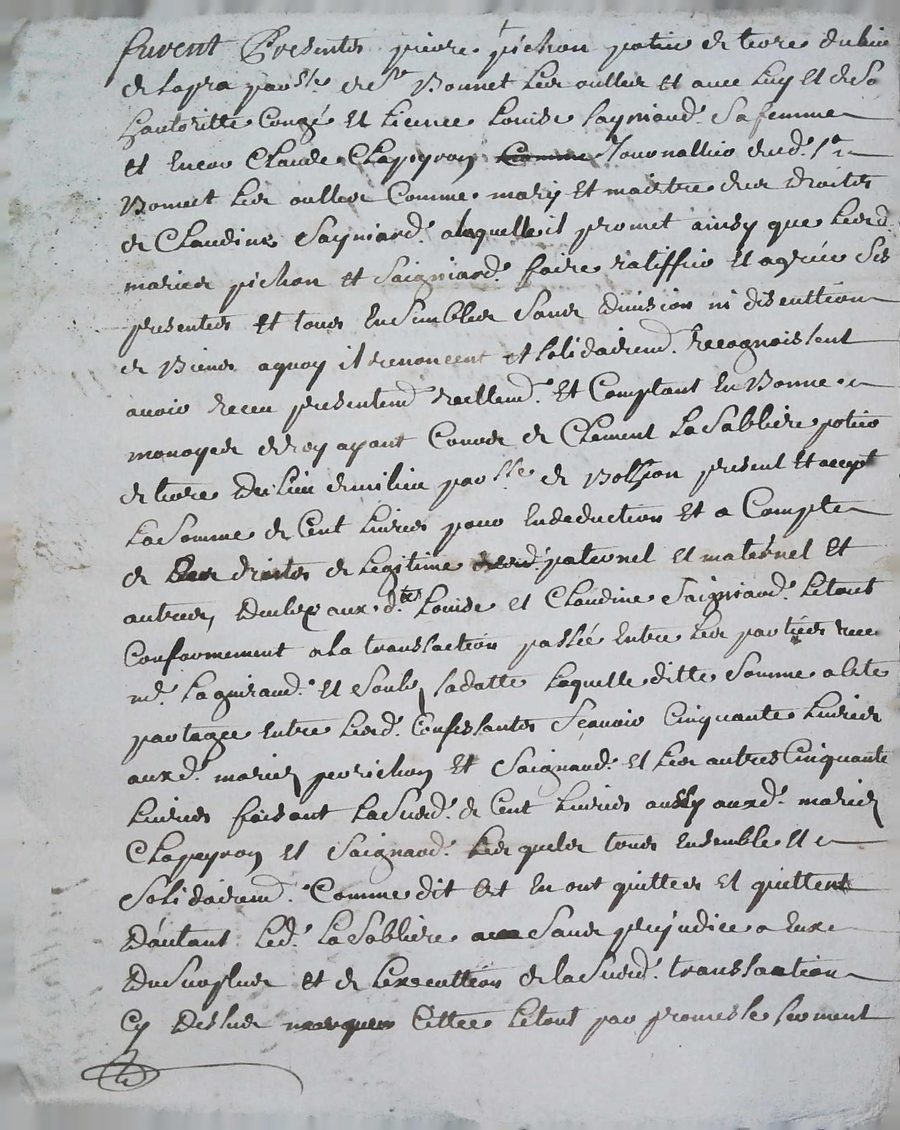 furent Presentes pierre pichon potier de terre du lieu
de Lapra parsse de st Bonnet Les oulles et avec Luy et de Sa
Hautoritte Congé et Licence Louise Saigniard Sa femme
et Encor Claude Chapeyron Comme Journallier dud. st
Bonnet Les oulles Comme mary et maistre des droits
de Claudine Saigniard. alaquelle il promet ainsy que Lesd.
maries pichon et Saigniard. faire ratiffier et agréer Ses
presentes et tous Ensembles Sans division ni discuttion
de Biens aquoy il renoncent et Solidairemt. Recognoissent
avoir receu presentemt reellemt. et Comptant En Bonne
monoyes de roy ayant Cours de Clement LaSabliere potier
de terre du Lieu de milieu parsse de present et accept
LaSomme de Cent Livres pour En deduction et a Compte
de Les droits de Legitime paternel et maternel et
autres, deubs aux dttes Louise et Claudine Saigniard. Letout
Conformement ala transaction passée Entre Les parties recu
me. Laguirand. et Soubs Sadatte Laquelle ditte Somme a Eté
partagée Entre Lesd. Confessantes Scavoir Cinquante Livres
auxd. maries perichon et Saignard. et Les autres Cinquante
Livres faisant LaSusd. de Cent Livres aussy auxd. maries
Chapeyron et Saignard. Lesquels tous Ensemble et
Solidairemt. Comme dit Est En ont quittes et quittent
Dautant Led. LaSabliere Sans prejudice a Eux
DuSurplus et de Lexecuttion de laSusd. transaction
Cy dessus Cittée Letout par promesse Serment